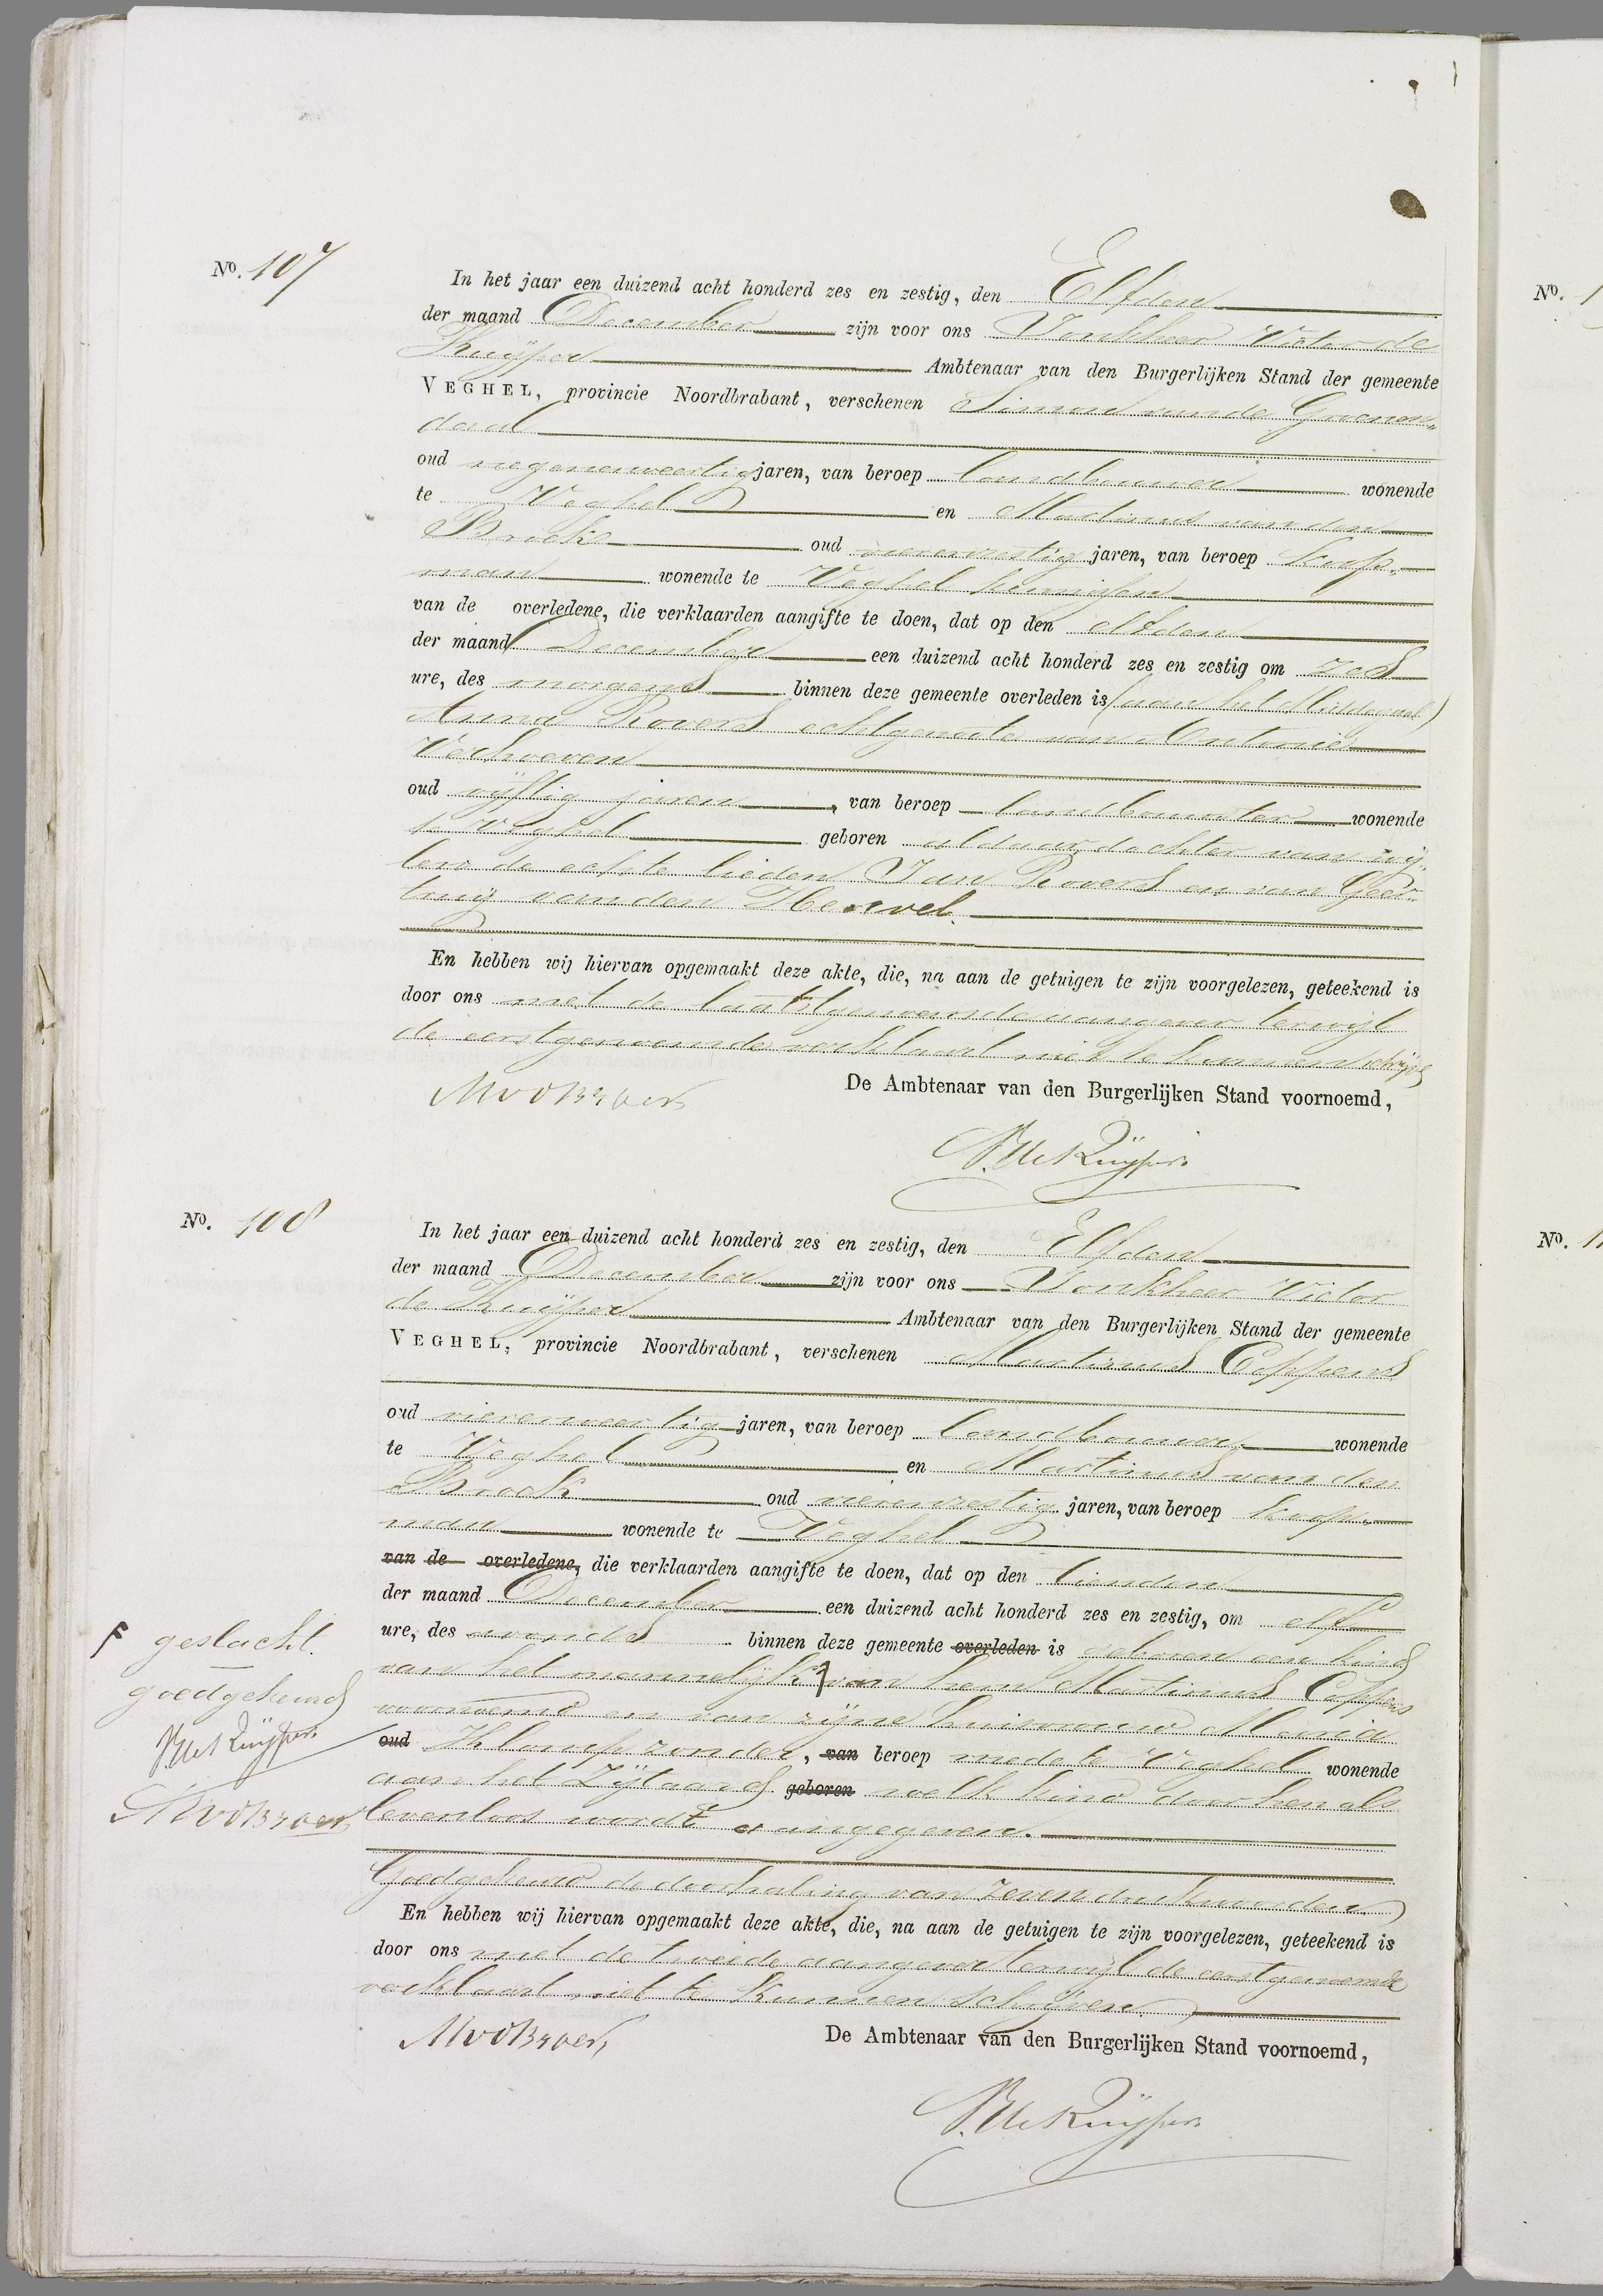 No. 107
In het jaar een duizend acht honderd zes en zestig, den Elfden
der maand December zijn voor ons Jonkheer Victor de
Kuyper Ambtenaar van den Burgerlijken Stand der gemeente
VEGHEL, provincie Noordbrabant, verschenen Simon van de Groenen„
daal
oud negenenveertig jaren, van beroep landbouwer wonende
te Veghel en Martinus van den
Broek oud vierenzestig jaren, van beroep koop„
man wonende te Veghel kennissen
van de overledene, die verklaarden aangifte te doen, dat op den elfden
der maand December een duizend acht honderd zes en zestig om zes
ure, des morgens binnen deze gemeente overleden is (aan het Middegaal)
Anna Rovers echtgenoote van Antonie
Verhoeven
oud vijftig jaren, van beroep landbouwster wonende
te Veghel geboren aldaar, dochter van wij„
len de echte lieden Jan Rovers en van Geer„
truij van den Heuvel.
En hebben wij hiervan opgemaakt deze akte, die, na aan de getuigen te zijn voorgelezen, geteekend is
door ons met de laatstgenoemde aangever terwijl
de eerstgenoemde verklaart niet te kunnen schrijven
MvdBroek
De Ambtenaar van den Burgerlijken Stand voornoemd,
V. de Kuyper
No. 108
In het jaar een duizend acht honderd zes en zestig, den Elfden
der maand December zijn voor ons Jonkheer Victor
de Kuyper Ambtenaar van den Burgerlijken Stand der gemeente
VEGHEL, provincie Noordbrabant, verschenen Martinus Coppens
oud vierenveertig jaren, van beroep landbouwer wonende
te Veghel en Martinus van den
Broek oud vierenzestig jaren, van beroep koop„
man wonende te Veghel
van de overledene, die verklaarden aangifte te doen, dat op den tienden
der maand December een duizend acht honderd zes en zestig, om elf
ure, des avonds binnen deze gemeente overleden is geboren een kind
van het mannelijk F van hem Martinus Coppens
voornoemd en van zijne huisvrouw Maria
oud Klomp zonder, van beroep mede te Veghel wonende
aan het Zijtaard geboren welk kind door hen als
levenloos wordt aangegeven.
Goedgekeurd de doorhaling van zeven drukwoorden
En hebben wij hiervan opgemaakt deze akte, die, na aan de getuigen te zijn voorgelezen, geteekend is
door ons met de tweede aangever terwijl de eerstgenoemde
verklaart niet te kunnen schrijven
MvdBroek
De Ambtenaar van den Burgerlijken Stand voornoemd,
V. de Kuyper
F geslacht.
goedgekeurd
V. de Kuyper
MvdBroek
No. 1
No. 1